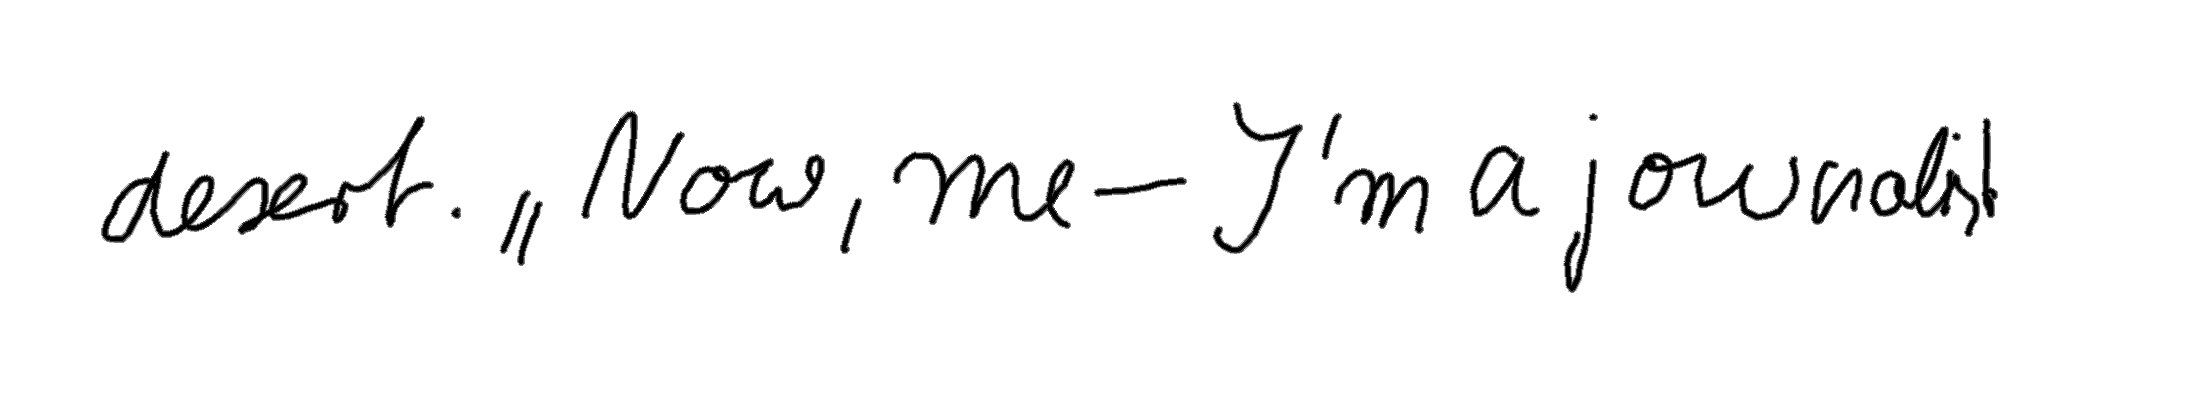 desert. „Now, me – I'm a journalist